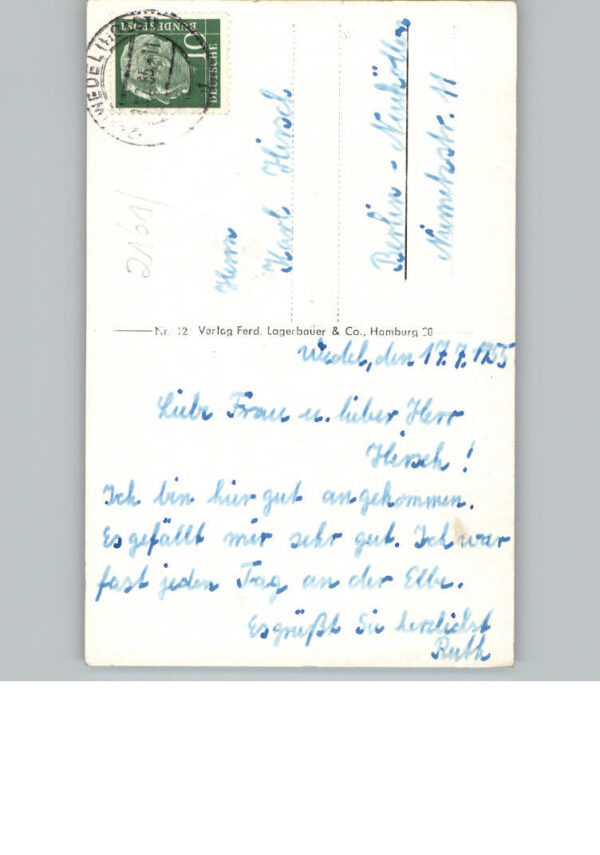 DEUTSCHE
BUNDESPOST
10
WEDEL (H
2161/
Herrn
Karl Hirsch
Berlin - Neukölln
Niemetzstr. 11
Nr. 12 Verlag Ferd. Lagerbauer & Co., Hamburg 20
Wedel, den 17.7.1955
Liebe Frau u. lieber Herr
Hirsch!
Ich bin hier gut angekommen.
Es gefällt mir sehr gut. Ich war
fast jeden Tag an der Elbe.
Es grüßt Sie herzlichst
Ruth